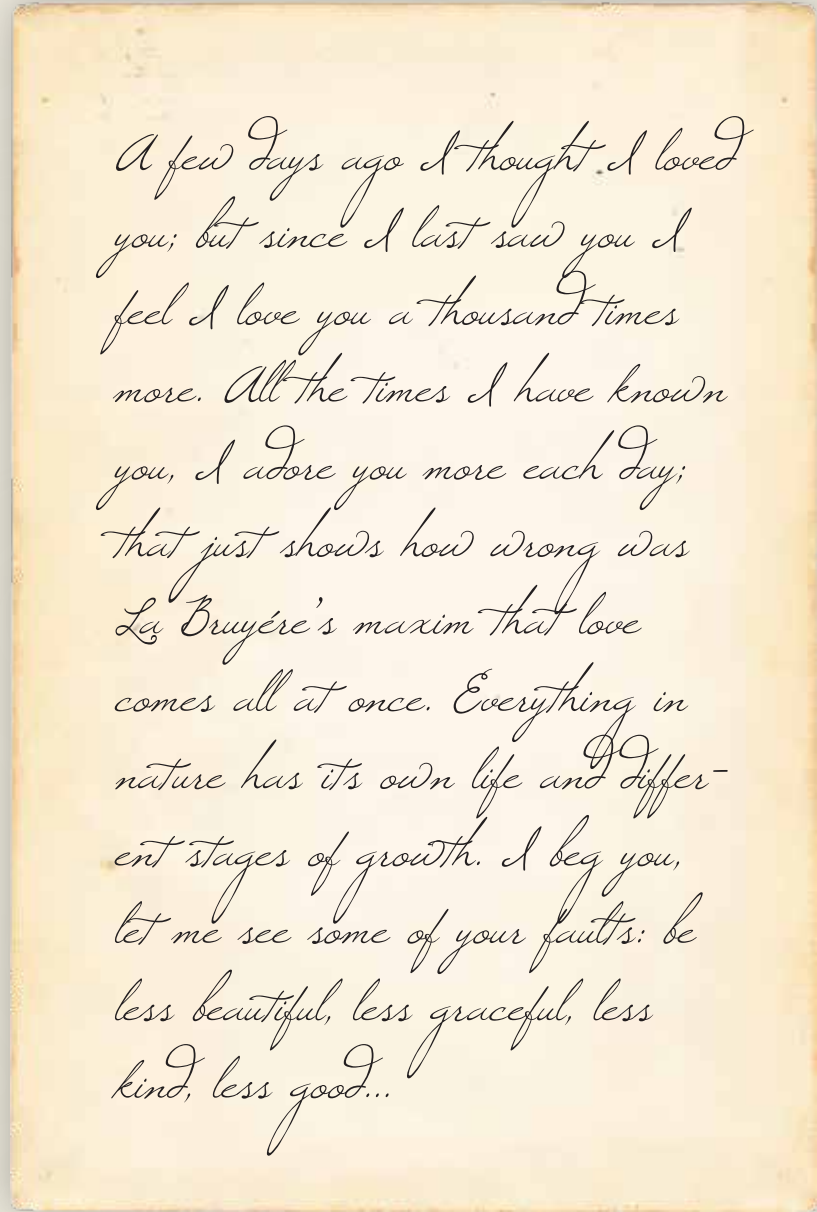 A few days ago I thought I loved
you; but since I last saw you I
feel I love you a thousand times
more. All the times I have known
you, I adore you more each day;
that just shows how wrong was
La Bruyére's maxim that love
comes all at once. Everything in
nature has its own life and differ-
ent stages of growth. I beg you,
let me see some of your faults: be
less beautiful, less graceful, less
kind, less good...